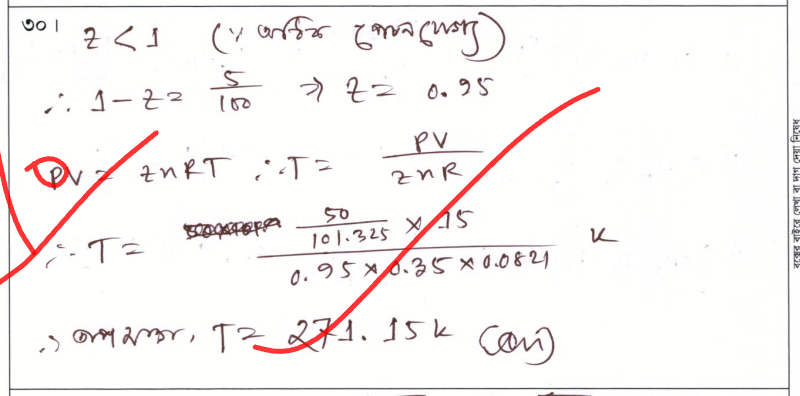 ৩০। Z < 1 (∵ অধিক পেষণযোগ্য)
∴ 1 - Z = 5/100 ⇒ Z = 0.95
PV = ZnRT ∴ T = PV/ZnR
∴ T = (50/101.325 × 15)/(0.95 × 0.35 × 0.0821) K
∴ তাপমাত্রা, T = 271.15 K (Ans)
বক্সের বাইরে লেখা বা দাগ দেয়া নিষেধ